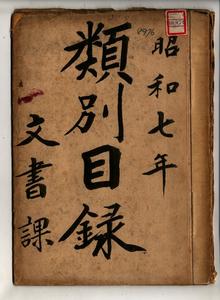 昭和七年
類別目録
文書課
0976